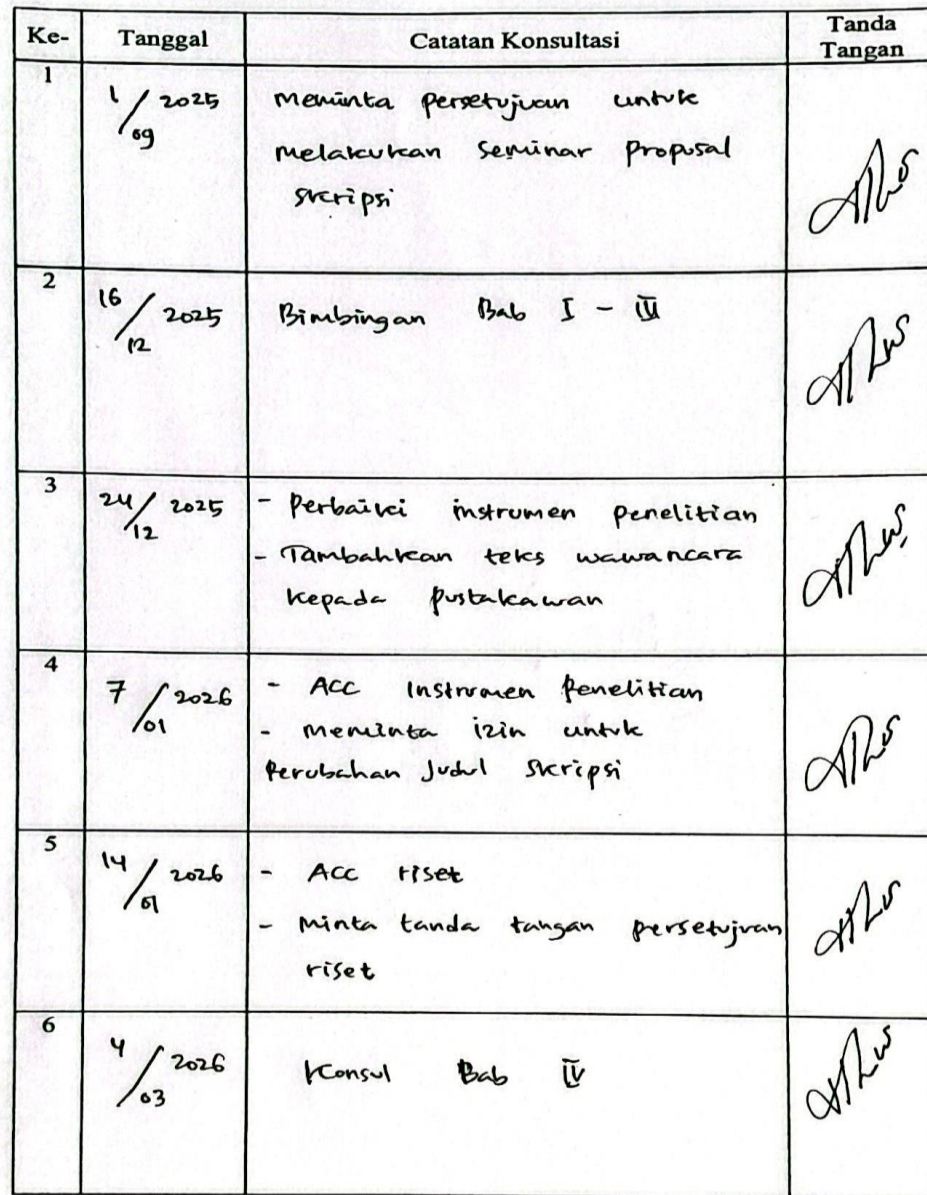 Ke- Tanggal Catatan Konsultasi Tanda Tangan
1
1/09 2025 meminta persetujuan untuk
melakukan seminar proposal
skripsi
2
16/12 2025 Bimbingan Bab I - III
3
24/12 2025 - Perbaiki instrumen penelitian
- Tambahkan teks wawancara
kepada pustakawan
4
7/01 2026 - ACC Instrumen Penelitian
- meminta izin untuk
Perubahan Judul Skripsi
5
14/01 2026 - ACC riset
- Minta tanda tangan persetujuan
riset
6
4/03 2026 Konsul Bab IV